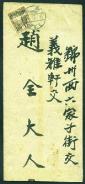 錦州西六家子街交
義雅軒交
趙全大人